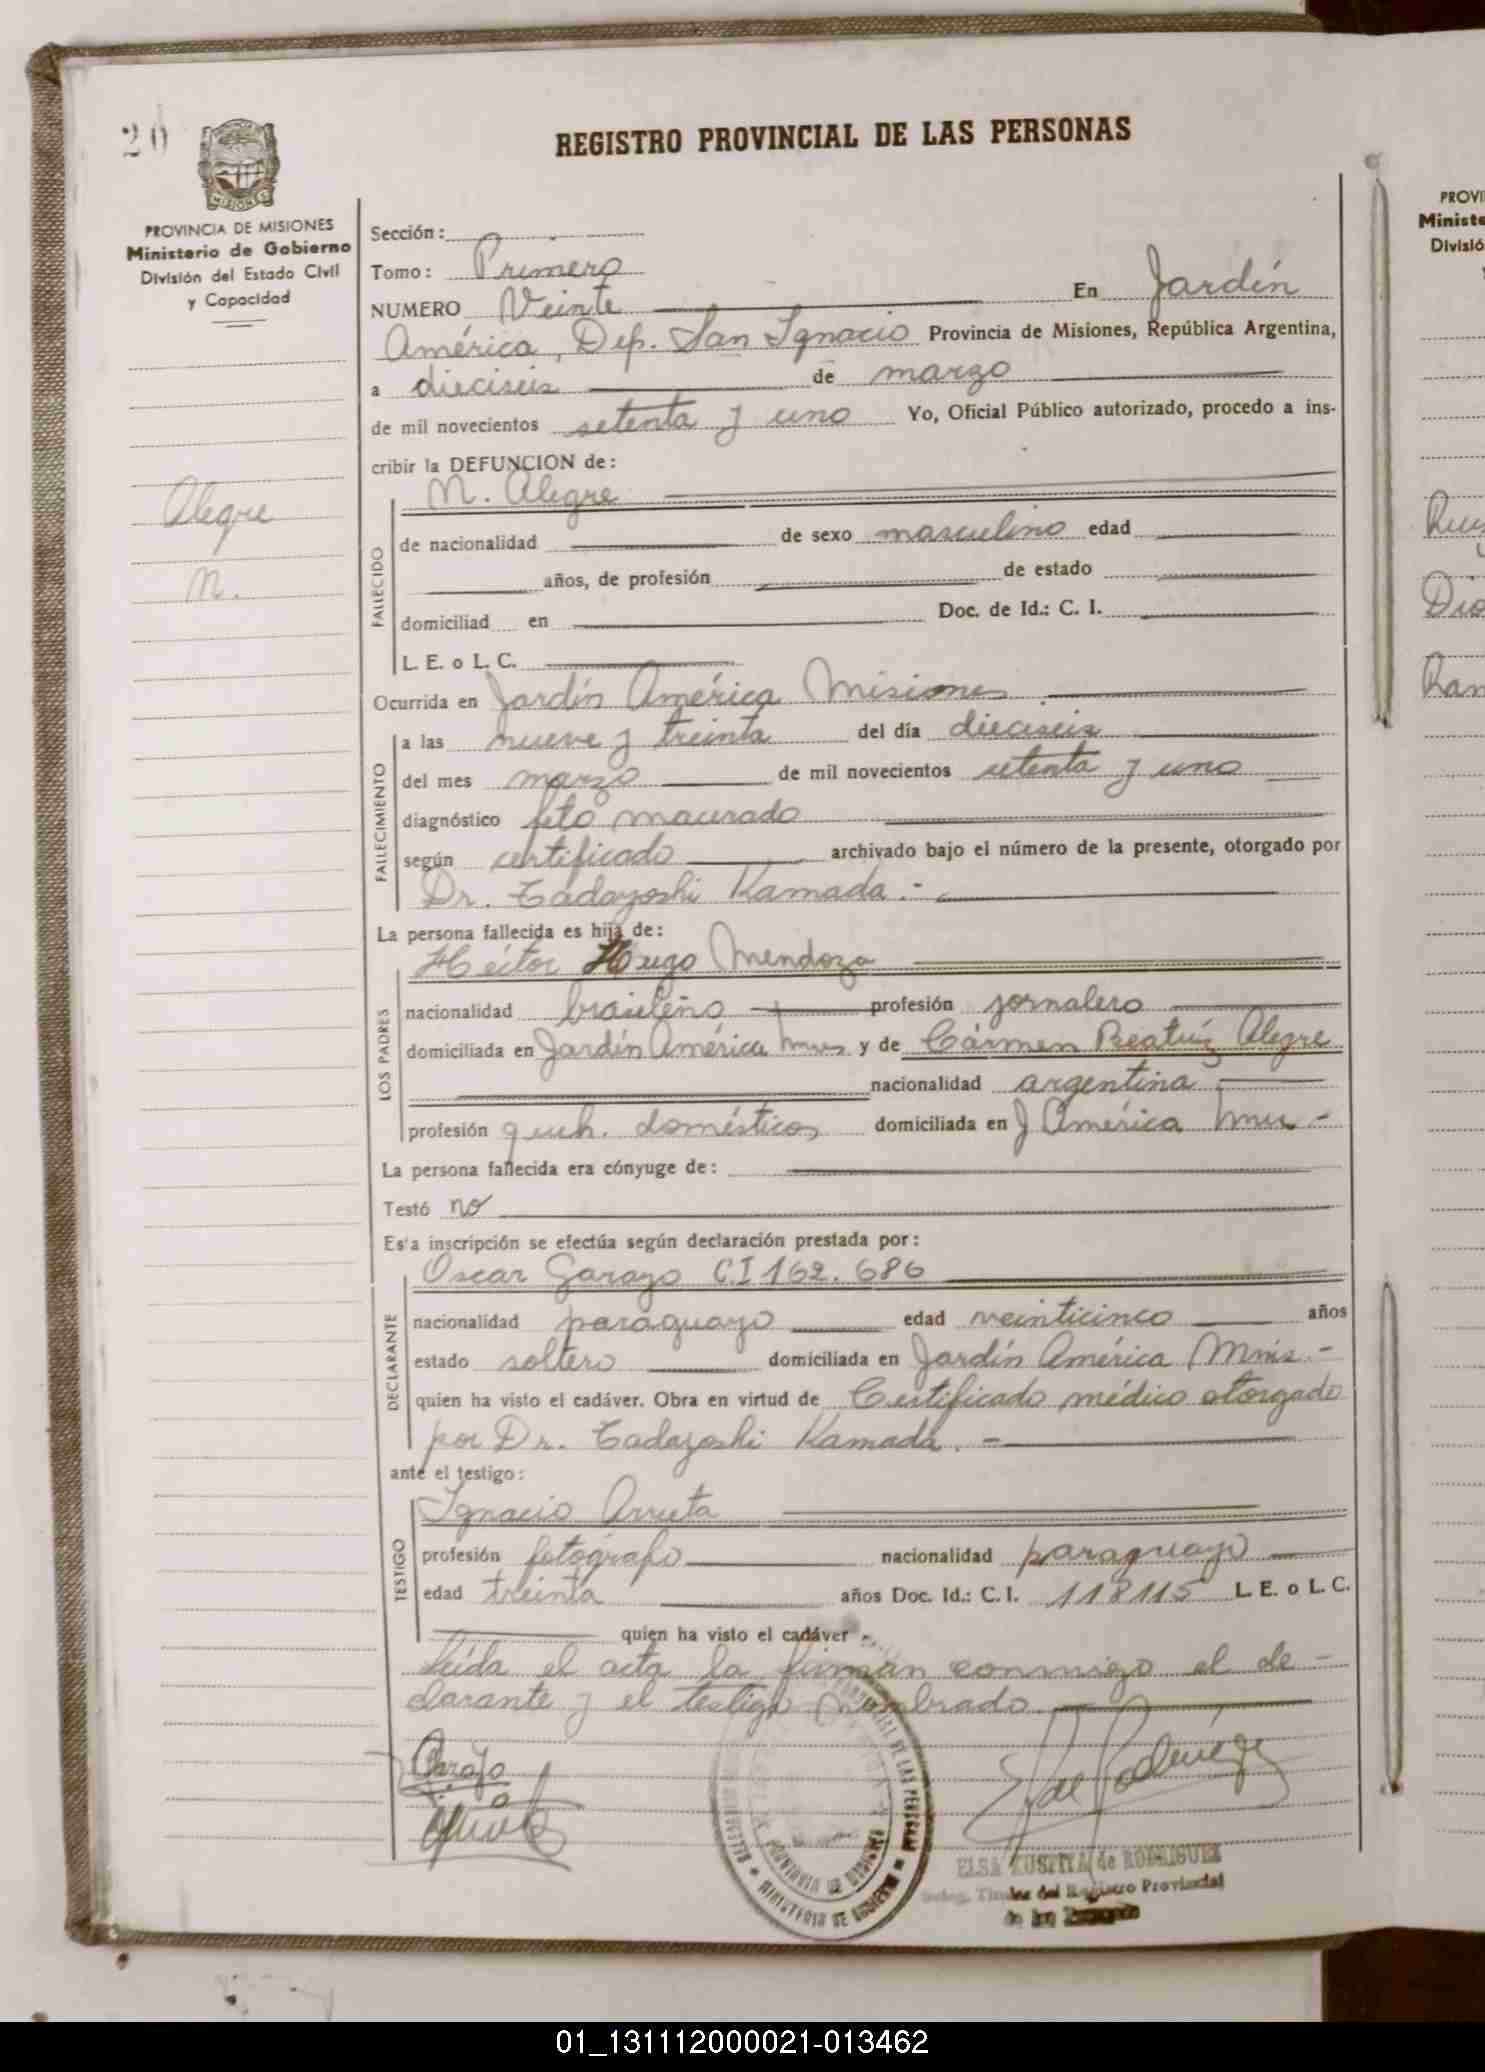 20
REGISTRO PROVINCIAL DE LAS PERSONAS
PROVINCIA DE MISIONES
Ministerio de Gobierno
División del Estado Civil
y Capacidad
Sección:
Tomo: Primero
NUMERO Veinte En Jardín
América, Dep. San Ignacio Provincia de Misiones, República Argentina,
a dieciseis de marzo
de mil novecientos setenta y uno Yo, Oficial Público autorizado, procedo a ins-
cribir la DEFUNCION de:
Alegre
N.
FALLECIDO
N. Alegre
de nacionalidad de sexo masculino edad
años, de profesión de estado
domiciliad en Doc. de Id.: C. I.
L. E. o L. C.
Ocurrida en Jardín América Misiones
FALLECIMIENTO
a las nueve y treinta del día dieciseis
del mes marzo de mil novecientos setenta y uno
diagnóstico feto macerado
según certificado archivado bajo el número de la presente, otorgado por
Dr. Tadayoshi Kamada.-
La persona fallecida es hija de:
LOS PADRES
Héctor Hugo Mendoza
nacionalidad brasileño profesión jornalero
domiciliada en Jardín América Mnes y de Cármen Beatríz Alegre
nacionalidad argentina
profesión queh. domésticos domiciliada en J América Mnes -
La persona fallecida era cónyuge de:
Testó no
Esta inscripción se efectúa según declaración prestada por:
DECLARANTE
Oscar Garayo C.I 162.686
nacionalidad paraguayo edad veinticinco años
estado soltero domiciliada en Jardín América Mnes.-
quien ha visto el cadáver. Obra en virtud de Certificado médico otorgado
por Dr. Tadayoshi Kamada. -
ante el testigo:
TESTIGO
Ignacio Arrieta
profesión fotógrafo nacionalidad paraguayo
edad treinta años Doc. Id.: C. I. 118115 L. E. o L. C.
quien ha visto el cadáver -
Leída el acta la firman conmigo el de-
clarante y el testigo nombrado.
ELSA de RODRIGUEZ
del Registro Provincial
de las Personas
PROVINCIA DE MISIONES
MINISTERIO DE GOBIERNO
PROVI
Ministe
Divisió
01_131112000021-013462